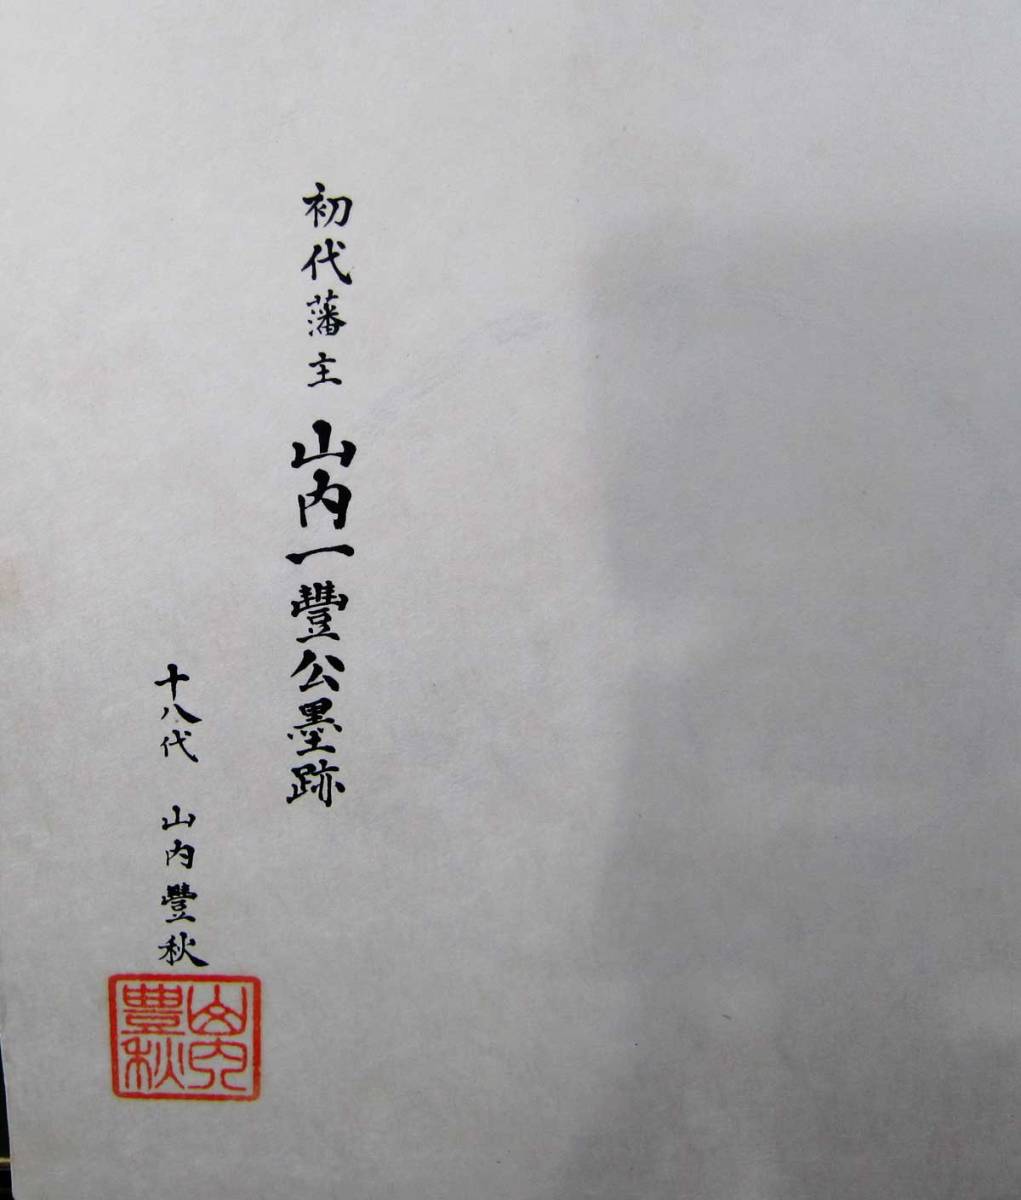 初代藩主 山内一豐公墨跡
十八代 山内豐秋
山内
豊秋